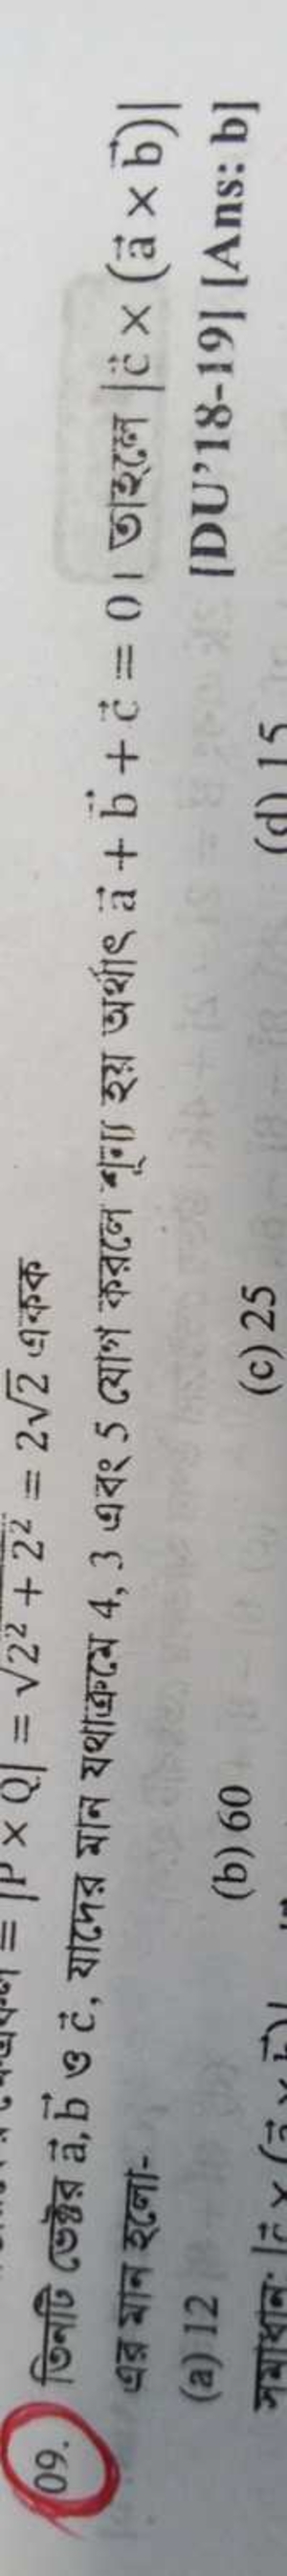 = |P × Q| = √2² + 2² = 2√2 একক
09. তিনটি ভেক্টর a⃗, b⃗ ও c⃗, যাদের মান যথাক্রমে 4, 3 এবং 5 যোগ করলে শূন্য হয় অর্থাৎ a⃗ + b⃗ + c⃗ = 0। তাহলে |c⃗ × (a⃗ × b⃗)|
এর মান হলো- [DU'18-19] [Ans: b]
(a) 12 (b) 60 (c) 25 (d) 15
সমাধান: |c⃗ × (a⃗ × b⃗)|